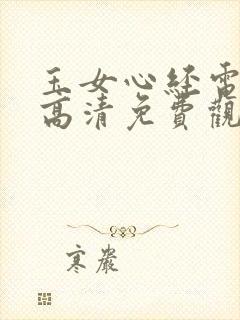 玉女心经電
高清免費觀
寒巖